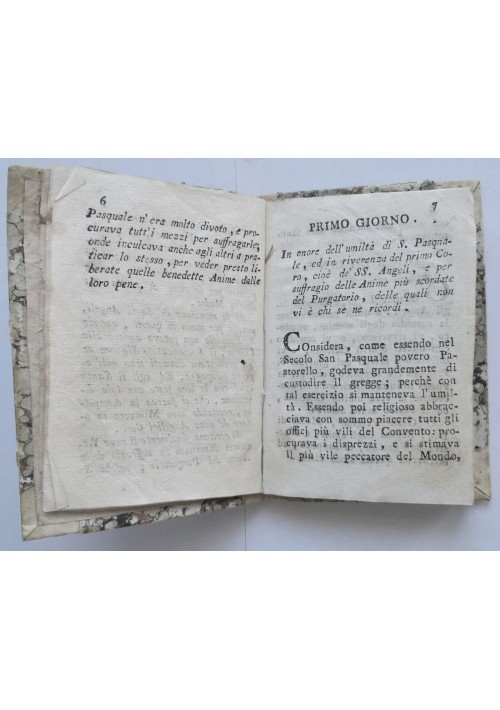 6
Pasquale n'era molto divoto, e pro-
curava tutt'i mezzi per suffragarle,
onde inculcava anche agli altri a pra-
ticar lo stesso, per veder presto li-
berate quelle benedette Anime dalle
loro pene.
7
PRIMO GIORNO.
In onore dell'umiltà di S. Pasqua-
le, ed in riverenza del primo Co-
ro, cioè de' SS. Angeli, e per
suffragio delle Anime più scordate
del Purgatorio, delle quali non
vi è chi se ne ricordi.
Considera, come essendo nel
Secolo San Pasquale povero Pa-
storello, godeva grandemente di
custodire il gregge; perchè con
tal esercizio si manteneva l'umil-
tà. Essendo poi religioso abbrac-
ciava con sommo piacere tutti gli
officj più vili del Convento: pro-
curava i disprezzi, e si stimava
il più vile peccatore del Mondo,